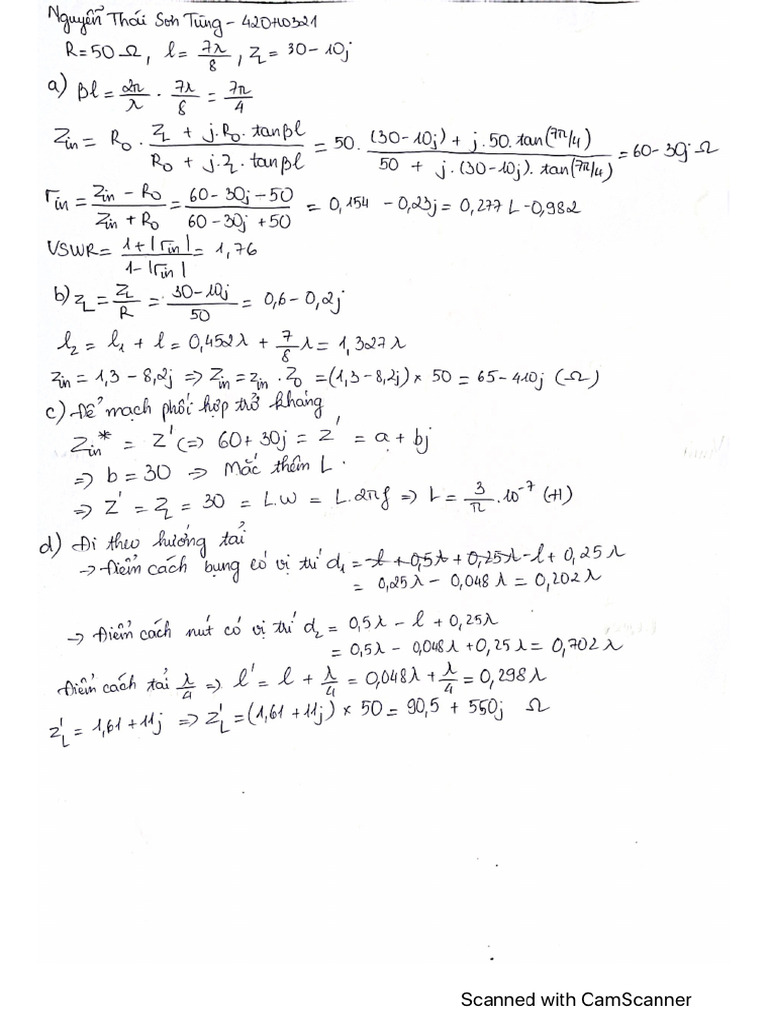 Nguyễn Thái Sơn Tùng - 420H0321
R = 50 Ω, l = 7λ/8, Z_L = 30 - 10j
a) βl = 2π/λ . 7λ/8 = 7π/4
Z_in = R_0 . (Z_L + j.R_0.tanβl)/(R_0 + j.Z_L.tanβl) = 50. ((30-10j) + j.50.tan(7π/4))/(50 + j.(30-10j).tan(7π/4)) = 60-30j Ω
Γ_in = (Z_in - R_0)/(Z_in + R_0) = (60-30j-50)/(60-30j+50) = 0,154 - 0,23j = 0,277 ∠-0,982
VSWR = (1+|Γ_in|)/(1-|Γ_in|) = 1,76
b) z_L = Z_L/R = (30-10j)/50 = 0,6 - 0,2j
l_2 = l_1 + l = 0,452λ + 7/8 λ = 1,327λ
z_in = 1,3 - 8,2j => Z_in = z_in . Z_0 = (1,3 - 8,2j) × 50 = 65 - 410j (Ω)
c) Để mạch phối hợp trở kháng
Z_in* = Z' (=> 60 + 30j = Z' = a + bj
=> b = 30 => Mắc thêm L.
=> Z' = Z_L = 30 = L.w = L.2πf => L = 3/π . 10^-7 (H)
d) Đi theo hướng tải
-> Điểm cách bụng có vị trí d_1 = -l + 0,5λ + 0,25λ - l + 0,25λ
= 0,25λ - 0,048λ = 0,202λ
-> Điểm cách nút có vị trí d_2 = 0,5λ - l + 0,25λ
= 0,5λ - 0,048λ + 0,25λ = 0,702λ
Điểm cách tải λ/4 => l' = l + λ/4 = 0,048λ + λ/4 = 0,298λ
z'_L = 1,61 + 11j => Z'_L = (1,61 + 11j) × 50 = 90,5 + 550j Ω
Scanned with CamScanner